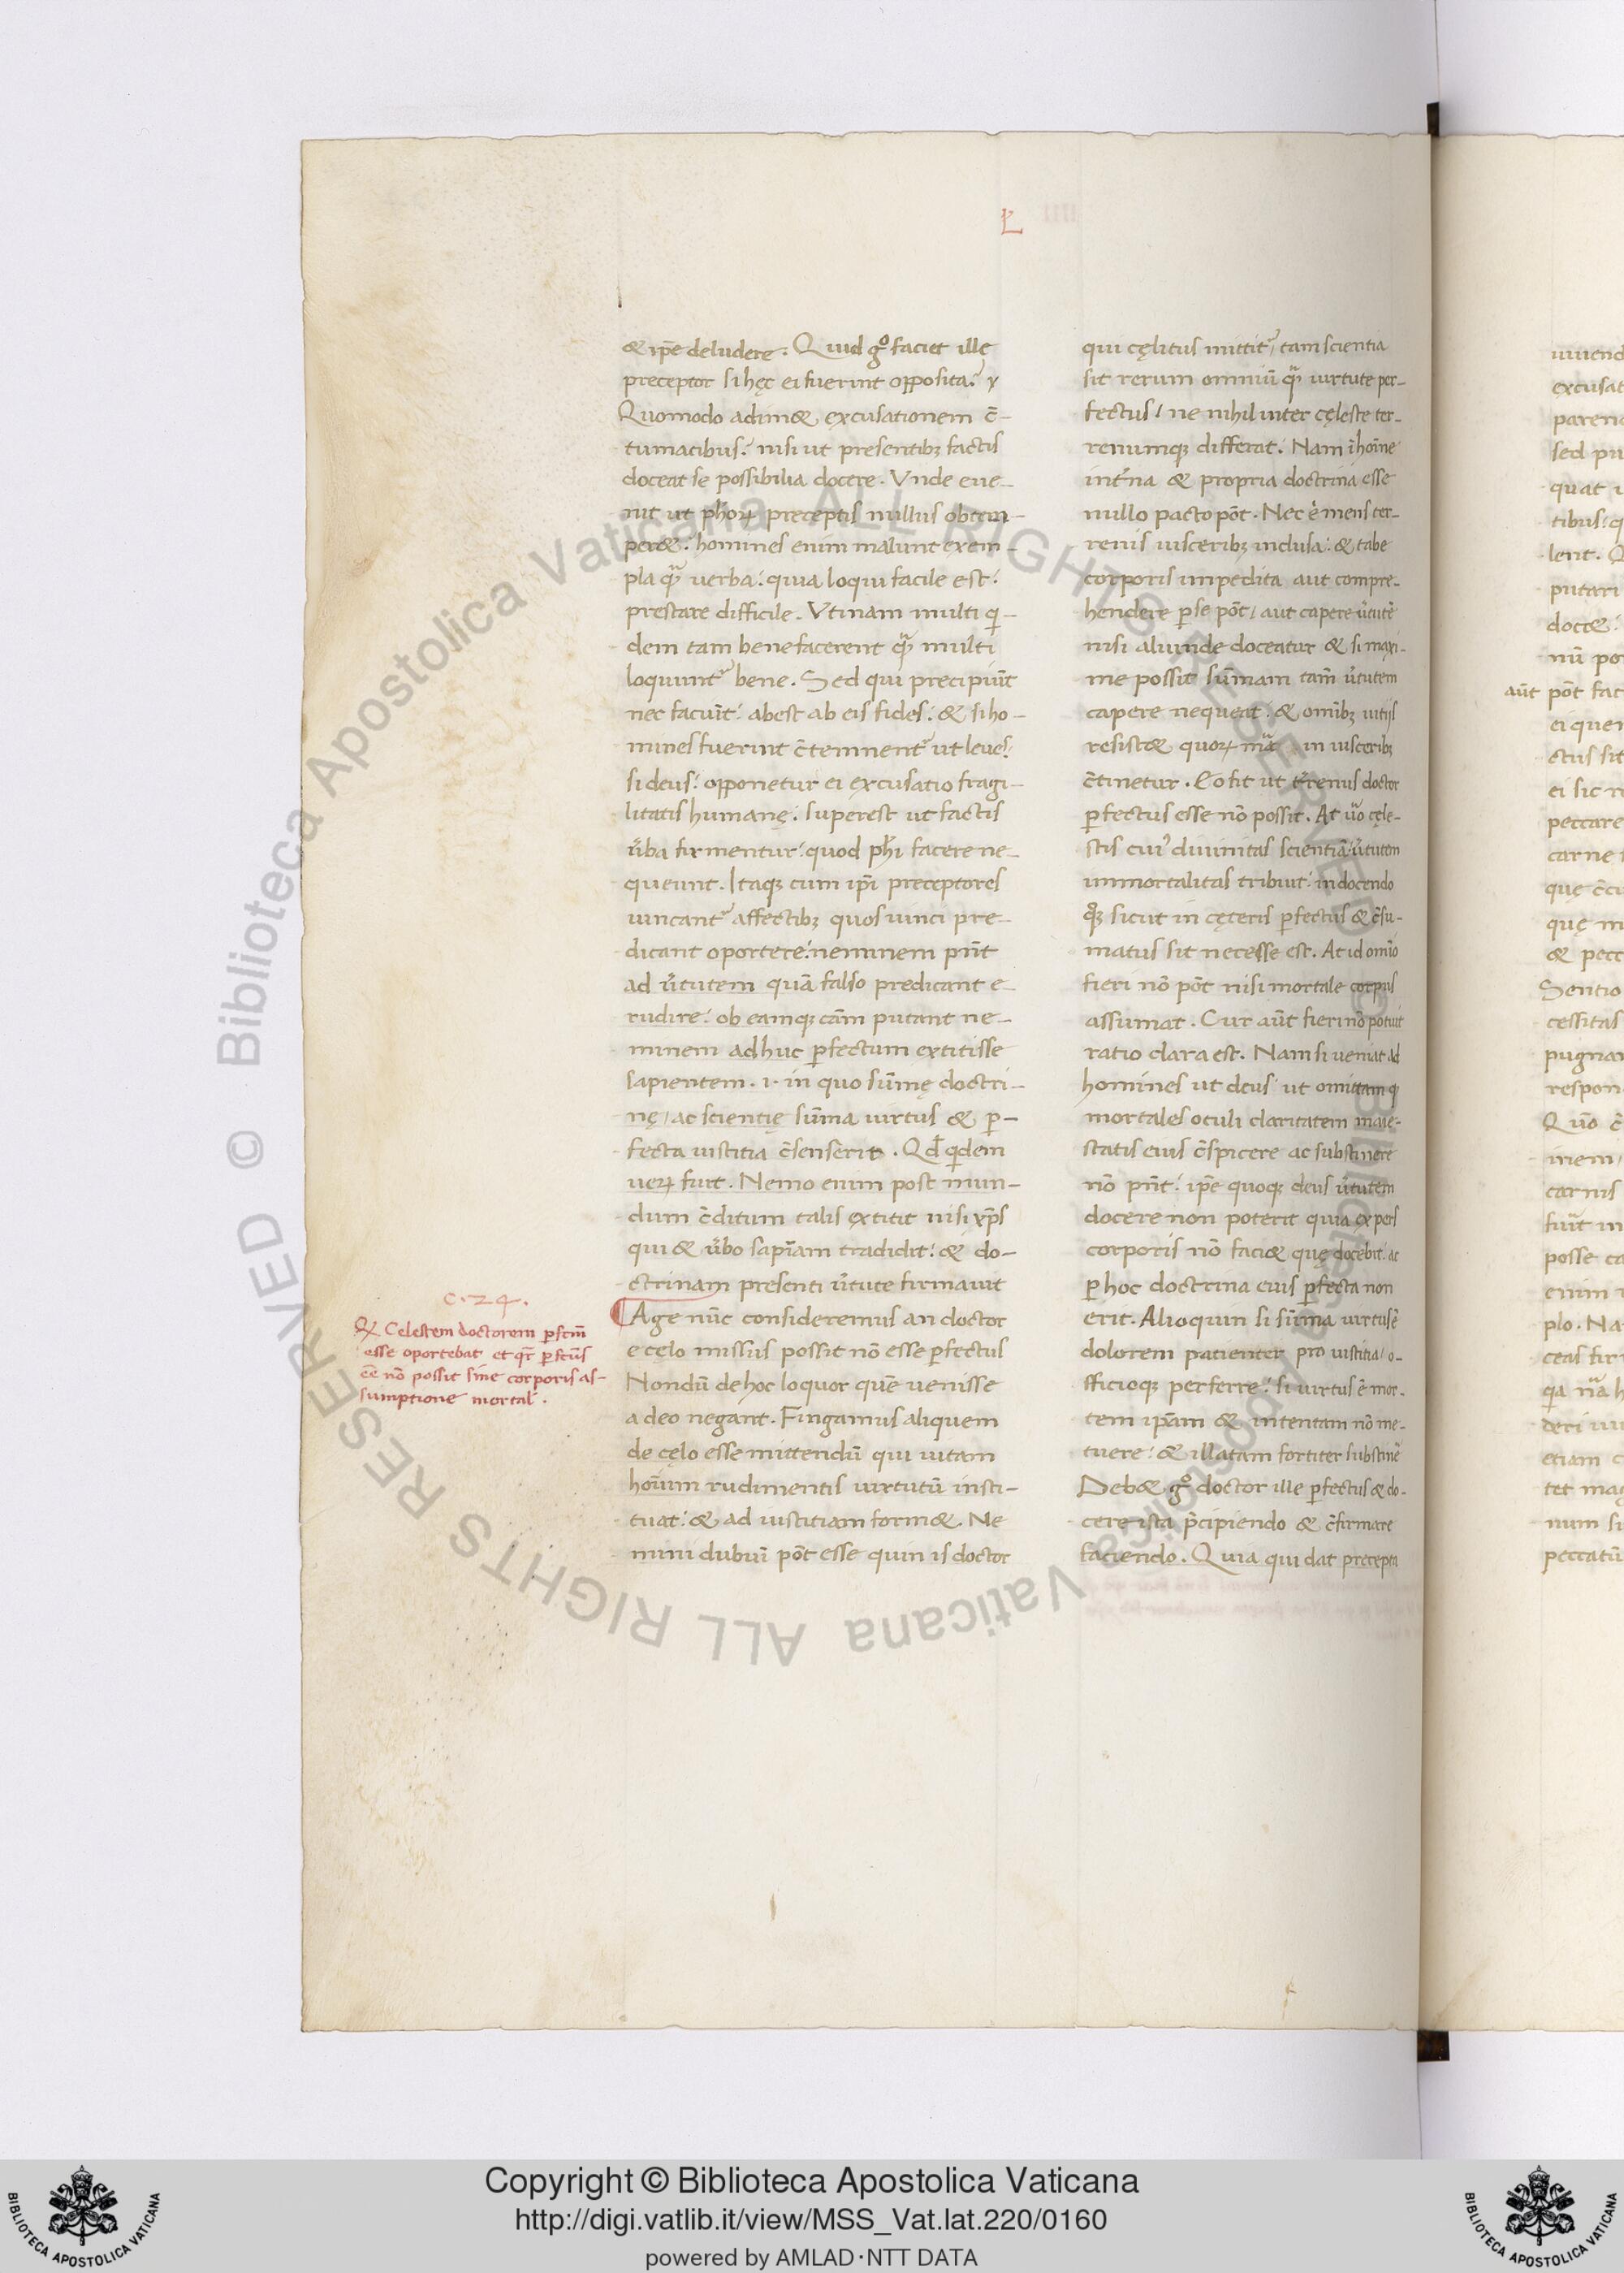 L
& ip̄e deludere. Quid g̊ faciet ille
preceptor si hęc ei fuerint opposita? γ
Quomodo adim& excusationem c̄-
tumacibus? nisi ut presentibꝫ factis
doceat se possibilia docere. Vnde eue-
nit ut ph̄oꝝ preceptis nullus obtem-
per&. homines enim malunt exem-
pla qᷓ uerba: quia loqui facile est:
prestare difficile. Vtinam multi q-
dem tam benefacerent qᷓ multi
loquunt᷑ bene. Sed qui precipiūt
nec faciūt: abest ab eis fides: & si ho-
mines fuerint c̄temnent᷑ ut leues:
si deus: opponetur ei excusatio fragi-
litatis humanę. superest ut factis
ūba firmentur: quod ph̄i facere ne-
queunt. Itaqꝫ cum ip̄i preceptores
uincant᷑ affectibꝫ quos uinci pre-
dicant oportere: neminem pn̄t
ad ūtutem quā falso predicant e-
rudire: ob eamqꝫ cām putant ne-
minem adhuc ꝑfectum extitisse
sapientem .i. in quo sūmę doctri-
nę, ac scientię sūma uirtus & ꝑ-
fecta iustitia c̄senserit. Qd̄ qdem
ueꝝ fuit. Nemo enim post mun-
dum c̄ditum talis extitit nisi xp̄s
qui & ūbo sapīam tradidit: & do-
ctrinam presenti ūtute firmauit
Age nūc consideremus an doctor
e cęlo missus possit nō esse ꝑfectus
Nondū de hoc loquor quē uenisse
a deo negant. Fingamus aliquem
de cęlo esse mittendū qui uitam
hoīum rudimentis uirtutū insti-
tuat: & ad iustitiam form&. Ne
mini dubiū pōt esse quin is doctor
c. 24.
Q Celestem doctorem ꝑfctm̄
esse oportebat et qr̄ ꝑfctus̄
eē nō possit sine corporis as-
sumptione mortal.
qui cęlitus mittit᷑, tam scientia
sit rerum omniū qᷓ uirtute per-
fectus, ne nihil inter cęleste ter-
renumqꝫ differat. Nam ī hoīne
int̄na & propria doctrina esse
nullo pacto pōt. Nec ē mens ter-
renis uisceribꝫ inclusa: & tabe
corporis impedita aut compre-
hendere ꝑ se pōt, aut capere ūtutē
nisi aliunde doceatur & si maxi-
me possit sūmam tam̄ ūtutem
capere nequeat. & omībꝫ uitijs
resist& quoꝝ mᷓa in uisceribꝫ
c̄tinetur. Eo fit ut t̄renus doctor
ꝑfectus esse nō possit. At ūo cęle-
stis cui᷒ diuinitas scientiā: ūtutem
immortalitas tribuit: in docendo
qꝫ sicut in cęteris ꝑfectus & c̄su-
matus sit necesse est. At id omīo
fieri nō pōt nisi mortale corpus
assumat. Cur aūt fieri nō potuit
ratio clara est. Nam si ueniat ad
homines ut deus: ut omittam q
mortales oculi claritatem maie-
statis eius c̄spicere ac substinere
nō pn̄t: ip̄e quoqꝫ deus ūtutem
docere non poterit quia expers
corporis nō faci& quę docebit: ac
ꝑ hoc doctrina eius ꝑfecta non
erit. Alioquin si sūma uirtus ē
dolorem patienter pro iustitia, o-
fficioqꝫ perferre: si uirtus ē mor-
tem ip̄am & intentam nō me-
tuere: & illatam fortiter substinē
Deb& g̊ doctor ille ꝑfectus & do-
cere ista p̄cipiendo & c̄firmare
faciendo. Quia qui dat precepta
Copyright © Biblioteca Apostolica Vaticana
http://digi.vatlib.it/view/MSS_Vat.lat.220/0160
powered by AMLAD·NTT DATA